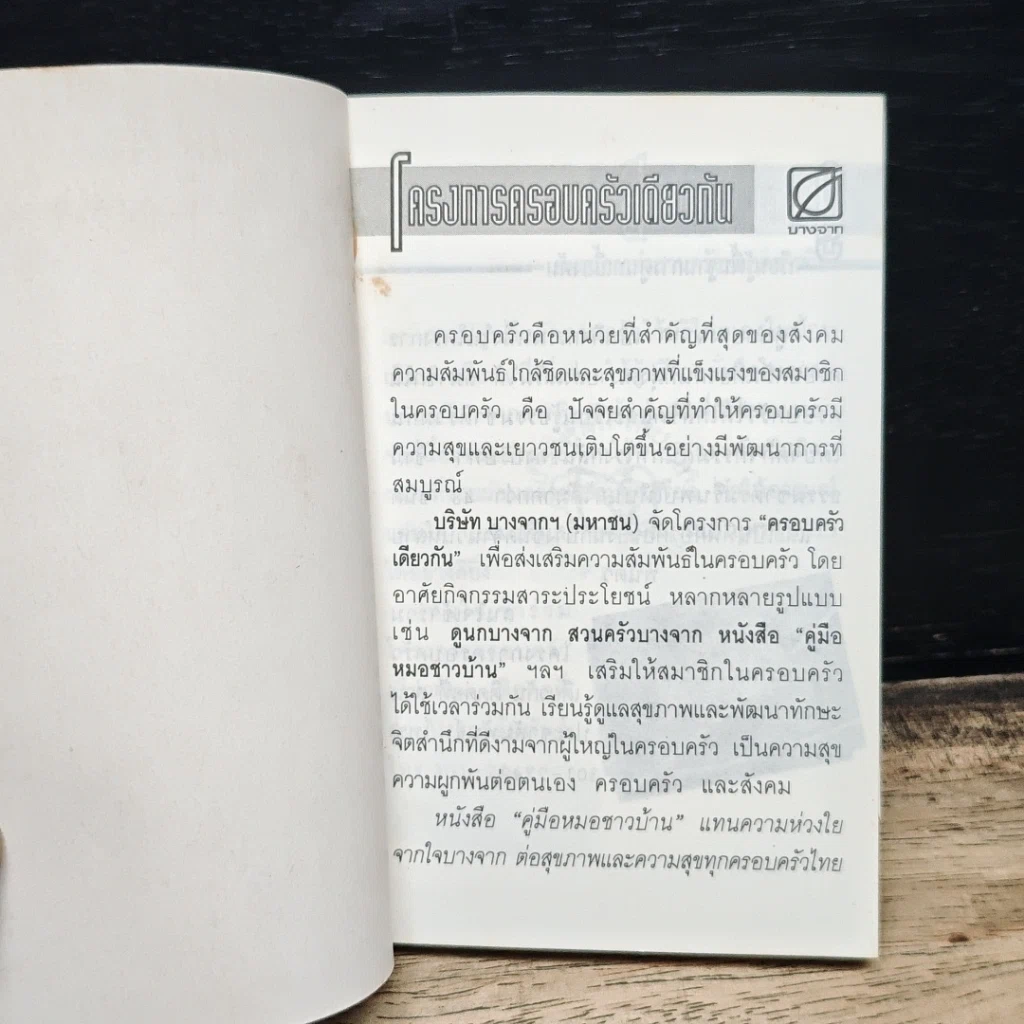 โครงการครอบครัวเดียวกัน
บางจาก
ครอบครัวคือหน่วยที่สำคัญที่สุดของสังคม
ความสัมพันธ์ใกล้ชิดและสุขภาพที่แข็งแรงของสมาชิก
ในครอบครัว คือ ปัจจัยสำคัญที่ทำให้ครอบครัวมี
ความสุขและเยาวชนเติบโตขึ้นอย่างมีพัฒนาการที่
สมบูรณ์
บริษัท บางจากฯ (มหาชน) จัดโครงการ “ครอบครัว
เดียวกัน” เพื่อส่งเสริมความสัมพันธ์ในครอบครัว โดย
อาศัยกิจกรรมสาระประโยชน์ หลากหลายรูปแบบ
เช่น ดูนกบางจาก สวนครัวบางจาก หนังสือ “คู่มือ
หมอชาวบ้าน” ฯลฯ เสริมให้สมาชิกในครอบครัว
ได้ใช้เวลาร่วมกัน เรียนรู้ดูแลสุขภาพและพัฒนาทักษะ
จิตสำนึกที่ดีงามจากผู้ใหญ่ในครอบครัว เป็นความสุข
ความผูกพันต่อตนเอง ครอบครัว และสังคม
หนังสือ “คู่มือหมอชาวบ้าน” แทนความห่วงใย
จากใจบางจาก ต่อสุขภาพและความสุขทุกครอบครัวไทย